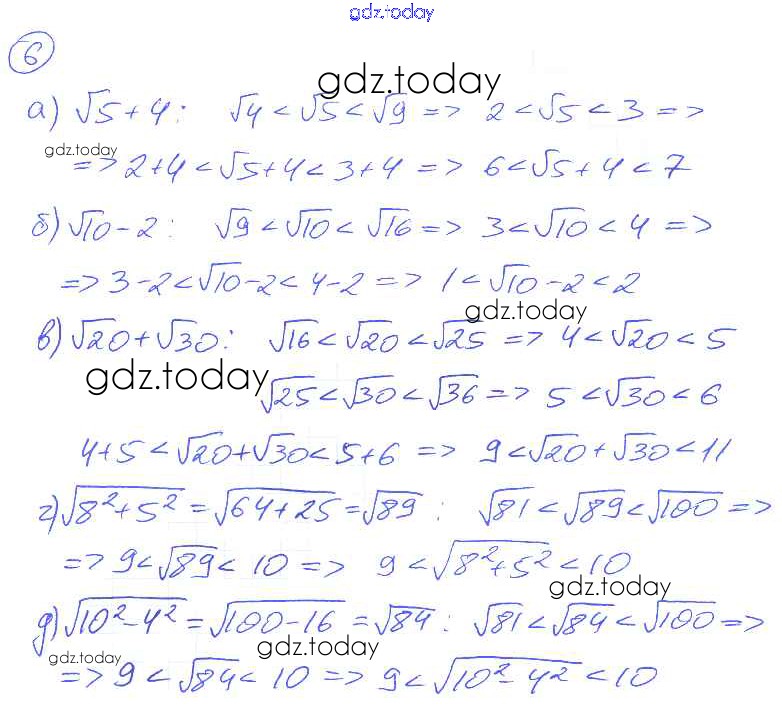 gdz.today
6
gdz.today
а) √5+4: √4 < √5 < √9 => 2 < √5 < 3 =>
gdz.today
=> 2+4 < √5+4 < 3+4 => 6 < √5+4 < 7
б) √10-2: √9 < √10 < √16 => 3 < √10 < 4 =>
=> 3-2 < √10-2 < 4-2 => 1 < √10-2 < 2
gdz.today
в) √20+√30: √16 < √20 < √25 => 4 < √20 < 5
gdz.today
√25 < √30 < √36 => 5 < √30 < 6
4+5 < √20+√30 < 5+6 => 9 < √20+√30 < 11
г) √(8²+5²) = √(64+25) = √89: √81 < √89 < √100 =>
=> 9 < √89 < 10 => 9 < √(8²+5²) < 10
gdz.today
д) √(10²-4²) = √(100-16) = √84: √81 < √84 < √100 =>
gdz.today
gdz.today
=> 9 < √84 < 10 => 9 < √(10²-4²) < 10